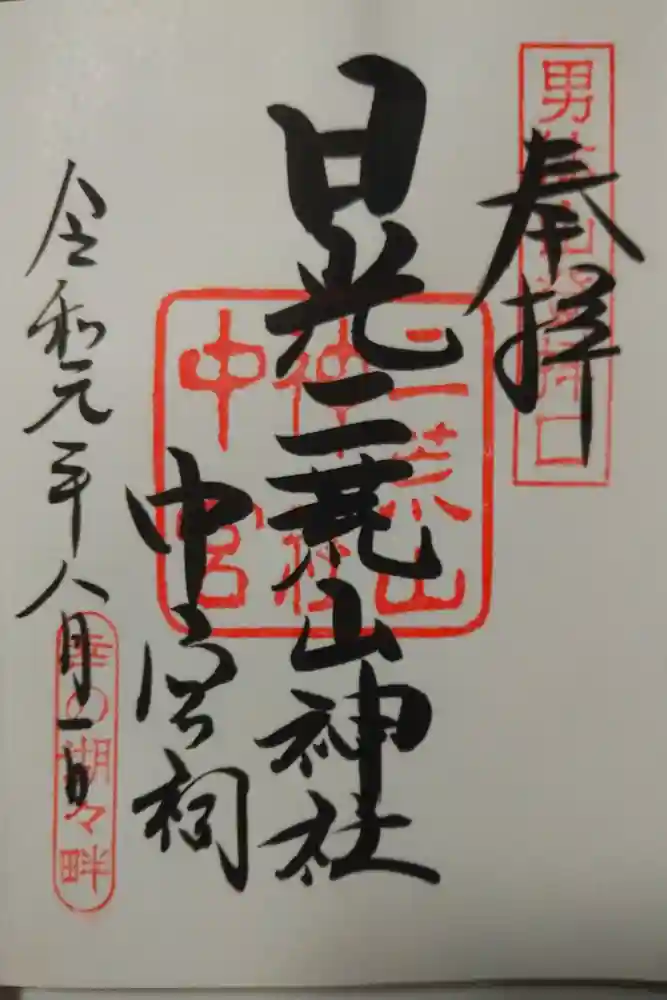 男体山登拝口
奉拝
日光二荒山神社
二荒山
神社
中宮
中宮祠
令和元年八月一日
幸の湖々畔